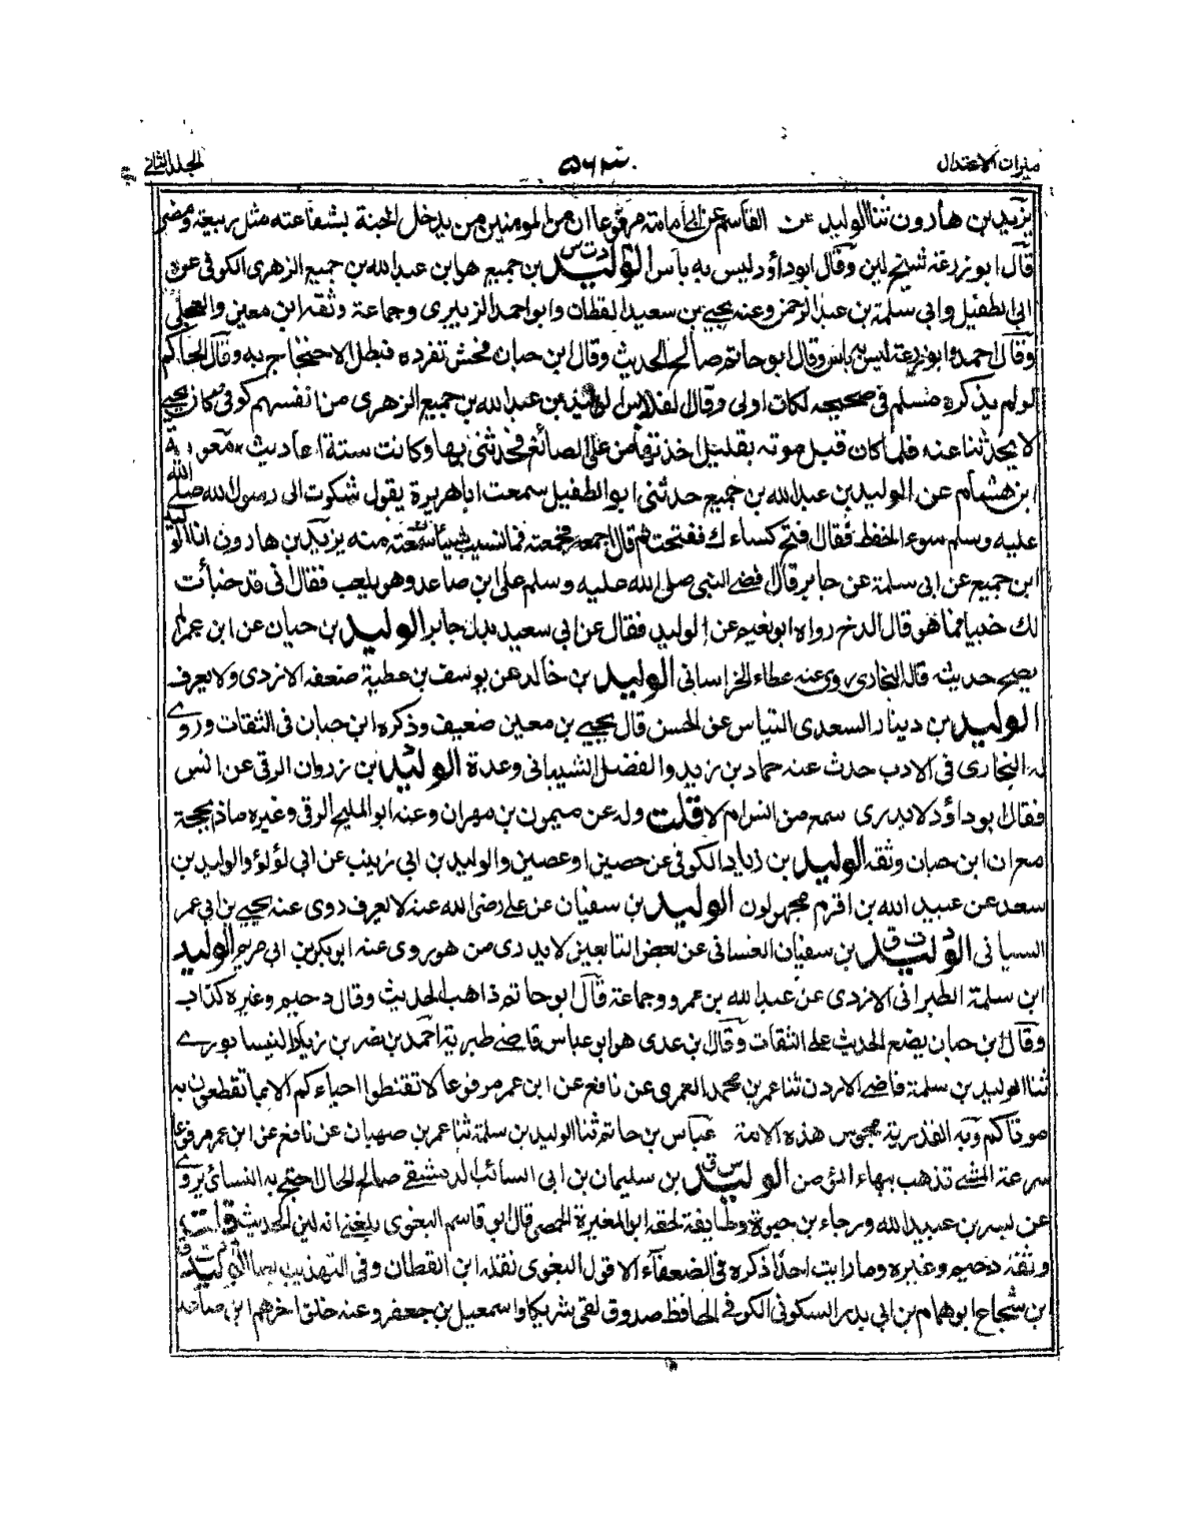 ميزان الاعتدال
٥٦٢
الجلد الثاني
يزيد بن هارون ثنا الوليد عن القاسم عن ابي امامة مرفوعا ان من المومنين من يدخل الجنة بشفاعته مثل ربيعة ومضر
قال ابو زرعة شيخ لين وقال ابو داؤد ليس به باس الوليد بن جميع هو ابن عبد الله بن جميع الزهرى الكوفى عن
ابي الطفيل وابي سلمة بن عبد الرحمن وعنه يحيى بن سعيد القطان وابو احمد الزبيرى وجماعة وثقه ابن معين والعجلي
وقال احمد وابو زرعة ليس به باس وقال ابو حاتم صالح الحديث وقال ابن حبان فحش تفرده فبطل الاحتجاج به وقال الحاكم
لو لم يذكره مسلم فى صحيحه لكان اولى وقال الفلاس الوليد بن عبد الله بن جميع الزهرى من انفسهم كوفى كان يحيى
لا يحدثنا عنه فلما كان قبل موته بقليل اخذتها من على الصائغ فحدثنى بها وكانت ستة احاديث معوية
ابن هشام عن الوليد بن عبد الله بن جميع حدثنى ابو الطفيل سمعت ابا هريرة يقول شكوت الى رسول الله صلى الله
عليه وسلم سوء الحفظ فقال فتح كساءك ففتحته ثم قال اجمعه فجمعته فما نسيت شيئا سمعته منه يزيد بن هارون انا الوليد
ابن جميع عن ابى سلمة عن جابر قال قضى النبى صلى الله عليه وسلم على ابن صاعد وهو يلعب فقال انى قد خبأت
لك خبيا فما هو قال الدخ رواه ابو نعيم عن الوليد فقال عن ابي سعيد بدل جابر الوليد بن حيان عن ابن عمر لم
يصح حديثه قاله البخارى روى عنه عطاء الخراسانى الوليد بن خالد عن يوسف بن عطية ضعفه الازدى ولا يعرف
الوليد بن دينار السعدى التياس عن الحسن قال يحيى بن معين ضعيف وذكره ابن حبان فى الثقات وروى
له البخارى فى الادب حدث عنه حماد بن زيد والفضل الشيبانى وعدة الوليد بن زروان الرقى عن انس
فقال ابو داؤد لا يدرى سمع من انس ام لا قلت وله عن ميمون بن مهران وعنه ابو المليح الرقى وغيره ماذ بحجة
مع ان ابن حبان وثقه الوليد بن زياد الكوفى عن حصين او عصين والوليد بن ابي زينب عن ابى لؤلؤ والوليد بن
سعد عن عبيد الله بن اقرم مجهولون الوليد بن سفيان عن على رضى الله عنه لا يعرف روى عنه يحيى بن ابى عمر
السيبانى الوليد بن سفيان الغسانى عن بعض التابعين لا يدرى من هو روى عنه ابو بكر بن ابى مريم الوليد
ابن سلمة الطبرانى الازدى عن عبد الله بن عمرو وجماعة قال ابو حاتم ذاهب الحديث وقال دحيم وغيره كذاب
وقال ابن حبان يضع الحديث على الثقات وقال بن عدى هو ابو عباس قاضى طبرية احمد بن نضر بن زياد النيسابورى
ثنا الوليد بن سلمة قاضى الاردن ثنا عمر بن محمد العمرى عن نافع عن ابن عمر مرفوعا لا تقنطوا احياءكم
موتاكم وبه القدرية مجوس هذه الامة عباس بن حاتم ثنا الوليد بن سلمة ثنا عمر بن صهبان عن نافع عن ابن عمر مرفوعا
سرعة المشى تذهب ببهاء المؤمن الوليد بن سليمان بن ابى السائب الدمشقى صالح الحال احتج به النسائى يروى
عن بسر بن عبيد الله ورجاء بن حيوة وطايفة لحقه ابو المغيرة الحمصى قال ابو قاسم البغوى بلغنى انه لين الحديث قلت
وثقه دحيم وغيره وما رايت احدا ذكره فى الضعفاء الا قول البغوى نقله ابن القطان وفى التهذيب الوليد
بن شجاع ابو همام بن ابي بدر السكونى الكوفى الحافظ صدوق لقى شريكا واسمعيل بن جعفر وعنه خلق اخرهم ابن صاعد